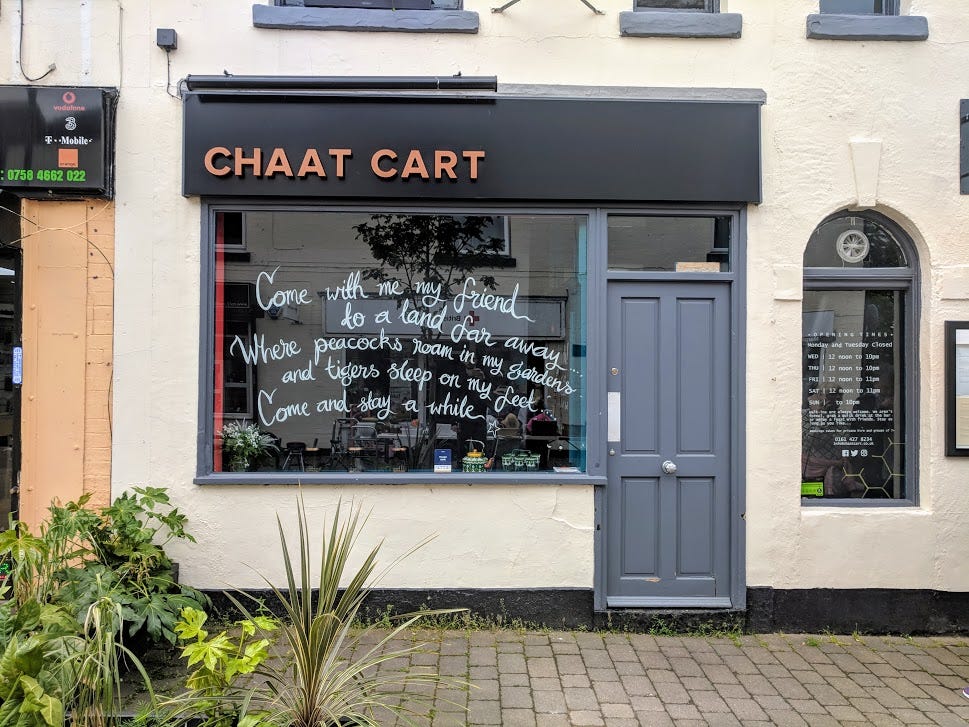 vodafone
3
T··Mobile·
: 0758 4662 022
CHAAT CART
Come with me my friend
to a land far away....
Where peacocks roam in my gardens
and tigers sleep on my feet
Come and stay a while
·OPENING TIMES·
Monday and Tuesday Closed
WED | 12 noon to 10pm
THU | 12 noon to 10pm
FRI | 12 noon to 11pm
SAT | 12 noon to 11pm
SUN | to 10pm
0161 427 8234